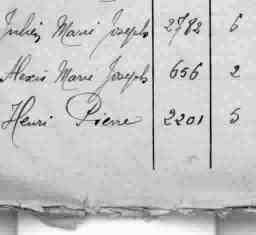 Julien Marie Joseph 2782 6
Alexis Marie Joseph 656 2
Henri Pierre 2201 5